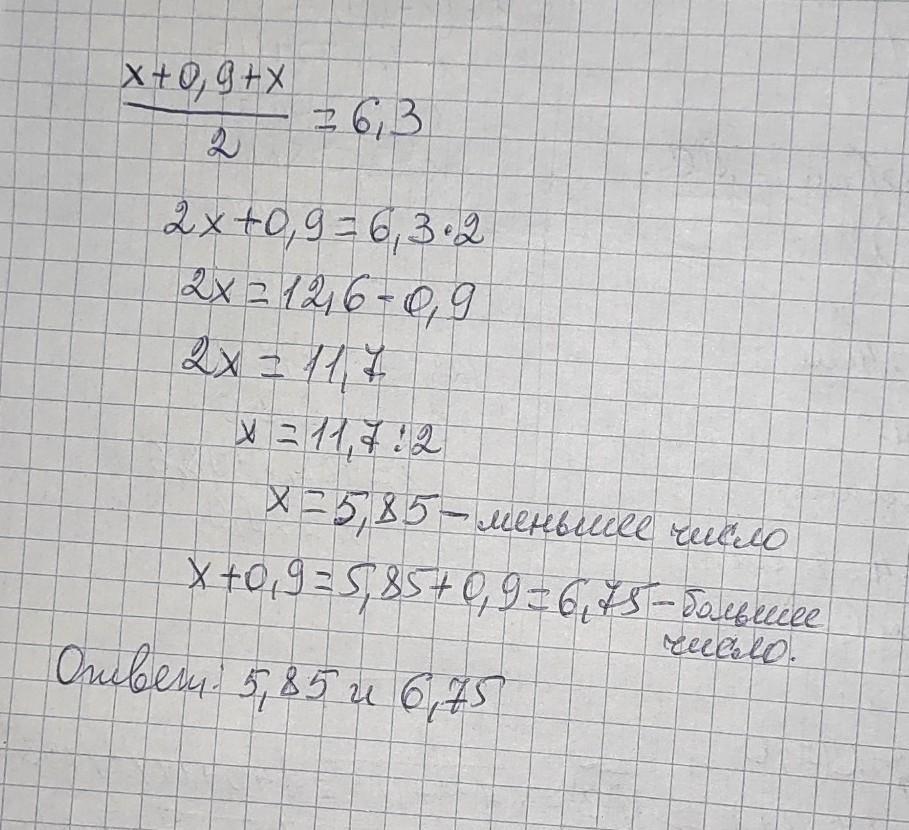 x+0,9+x
2
=6,3
2x+0,9=6,3·2
2x=12,6-0,9
2x=11,7
x=11,7:2
x=5,85 – меньшее число
x+0,9=5,85+0,9=6,75 – большее
число.
Ответ: 5,85 и 6,75